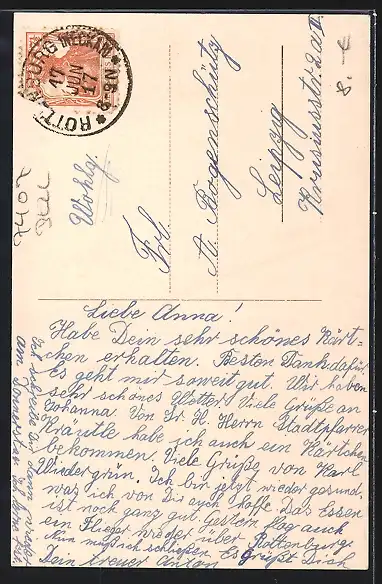 ROTTENBURG (NECKAR)
17
JUN
17
* N 8-9 *
Wohlg.
Frl.
A. Bogenschütz
Leipzig
Krusiusstr. 2a IV
Liebe Anna!
Habe Dein sehr schönes Kärt-
chen erhalten. Besten Dank dafür.
Es geht mir soweit gut. Wir haben
sehr schönes Wetter. Viele Grüße an
Johanna. Von Sr. H. Herrn Stadtpfarrer
Kräutle habe ich auch ein Kärtchen
bekommen. Viele Grüße von Karl
Wiedergrün. Ich bin jetzt wieder gesund,
was ich von Dir auch hoffe. Das Essen
ist noch ganz gut. Gestern flog auch
ein Flieger wieder über Rottenburg.
Nun muß ich schließen. Es grüßt Dich
Dein treuer Anton
Ich schreibe Dir dann wieder
am Donnerstag